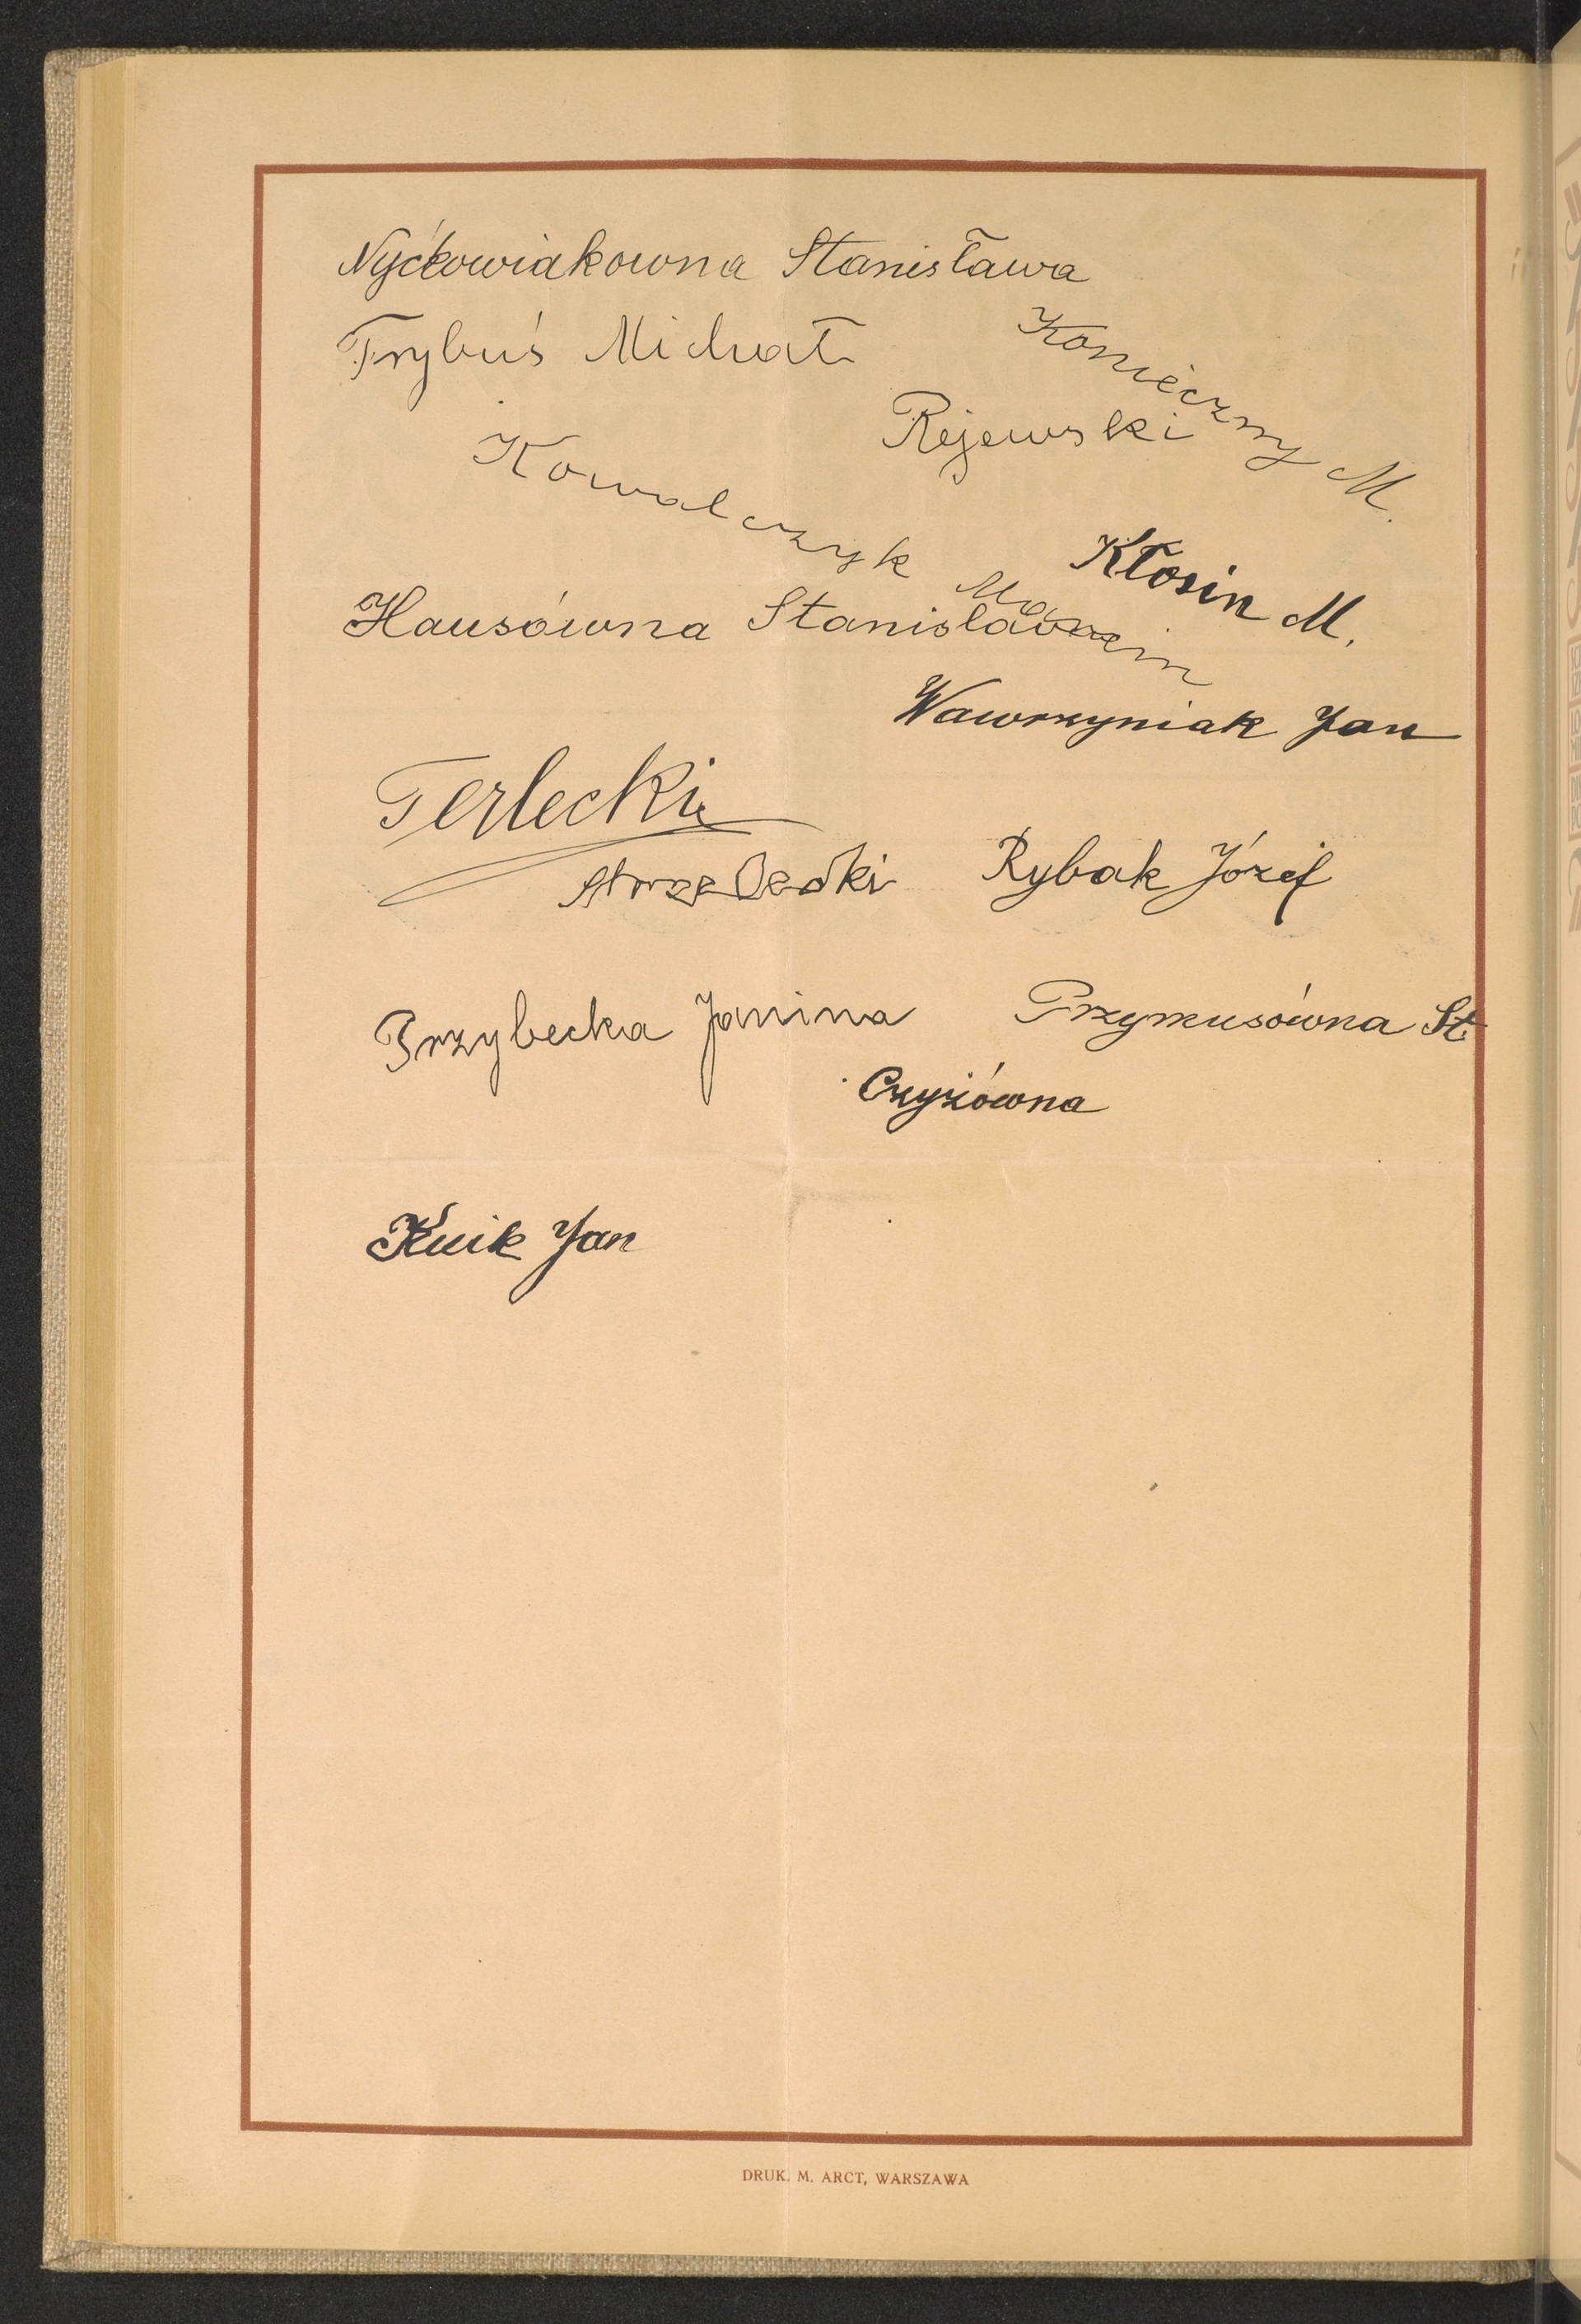 Nyćkowiakowna Stanisława
Trybuś Michał
Konieczny M.
Rejewski
Kowalczyk Marcin
Kłosin M.
Hausówna Stanisława
Wawrzyniak Jan
Terlecki
Strzelecki
Rybak Józef
Przybecka Janina
Przymusówna St.
Czyżówna
Kuik Jan
DRUK. M. ARCT, WARSZAWA